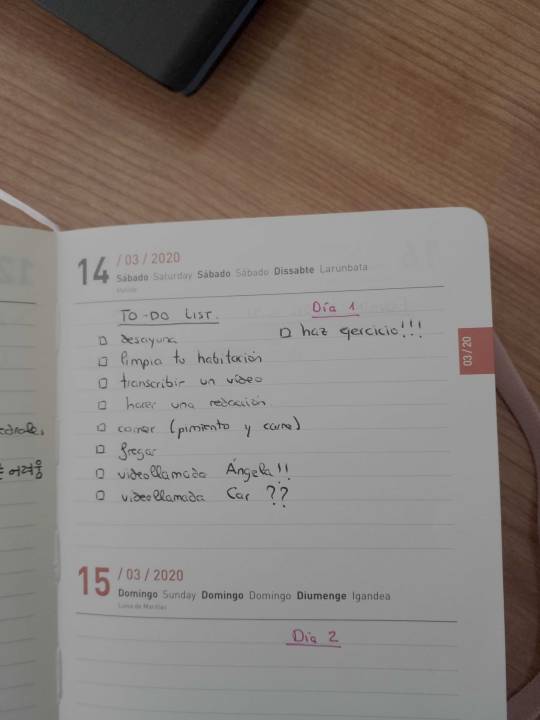 14 / 03 / 2020
Sábado Saturday Sábado Sábado Dissabte Larunbata
Matilde
TO-DO LIST.
Día 1
□ desayuna
□ haz ejercicio!!!
□ limpia tu habitación
□ transcribir un vídeo
□ hacer una redacción
□ comer (pimiento y carne)
□ fregar
□ videollamada Ángela!!
□ videollamada Car ??
03 / 20
15 / 03 / 2020
Domingo Sunday Domingo Domingo Diumenge Igandea
Luisa de Marillac
Día 2